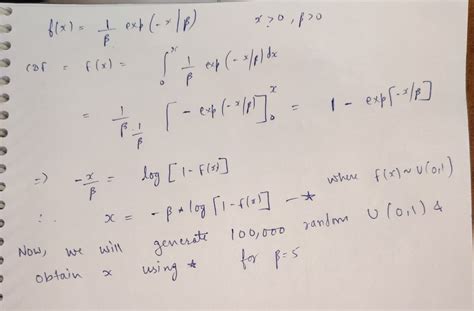 f(x) = 1/β exp(-x/β)    x>0, β>0
CDF = F(x) = ∫₀ˣ 1/β exp(-x/β) dx
= 1/β · 1/(1/β) [-exp(-x/β)]₀ˣ = 1 - exp[-x/β]
⇒ -x/β = log[1-F(x)]
∴ x = -β * log[1-F(x)] —* where F(x) ~ U(0,1)
Now, we will generate 100,000 random U(0,1) &
obtain x using * for β=5